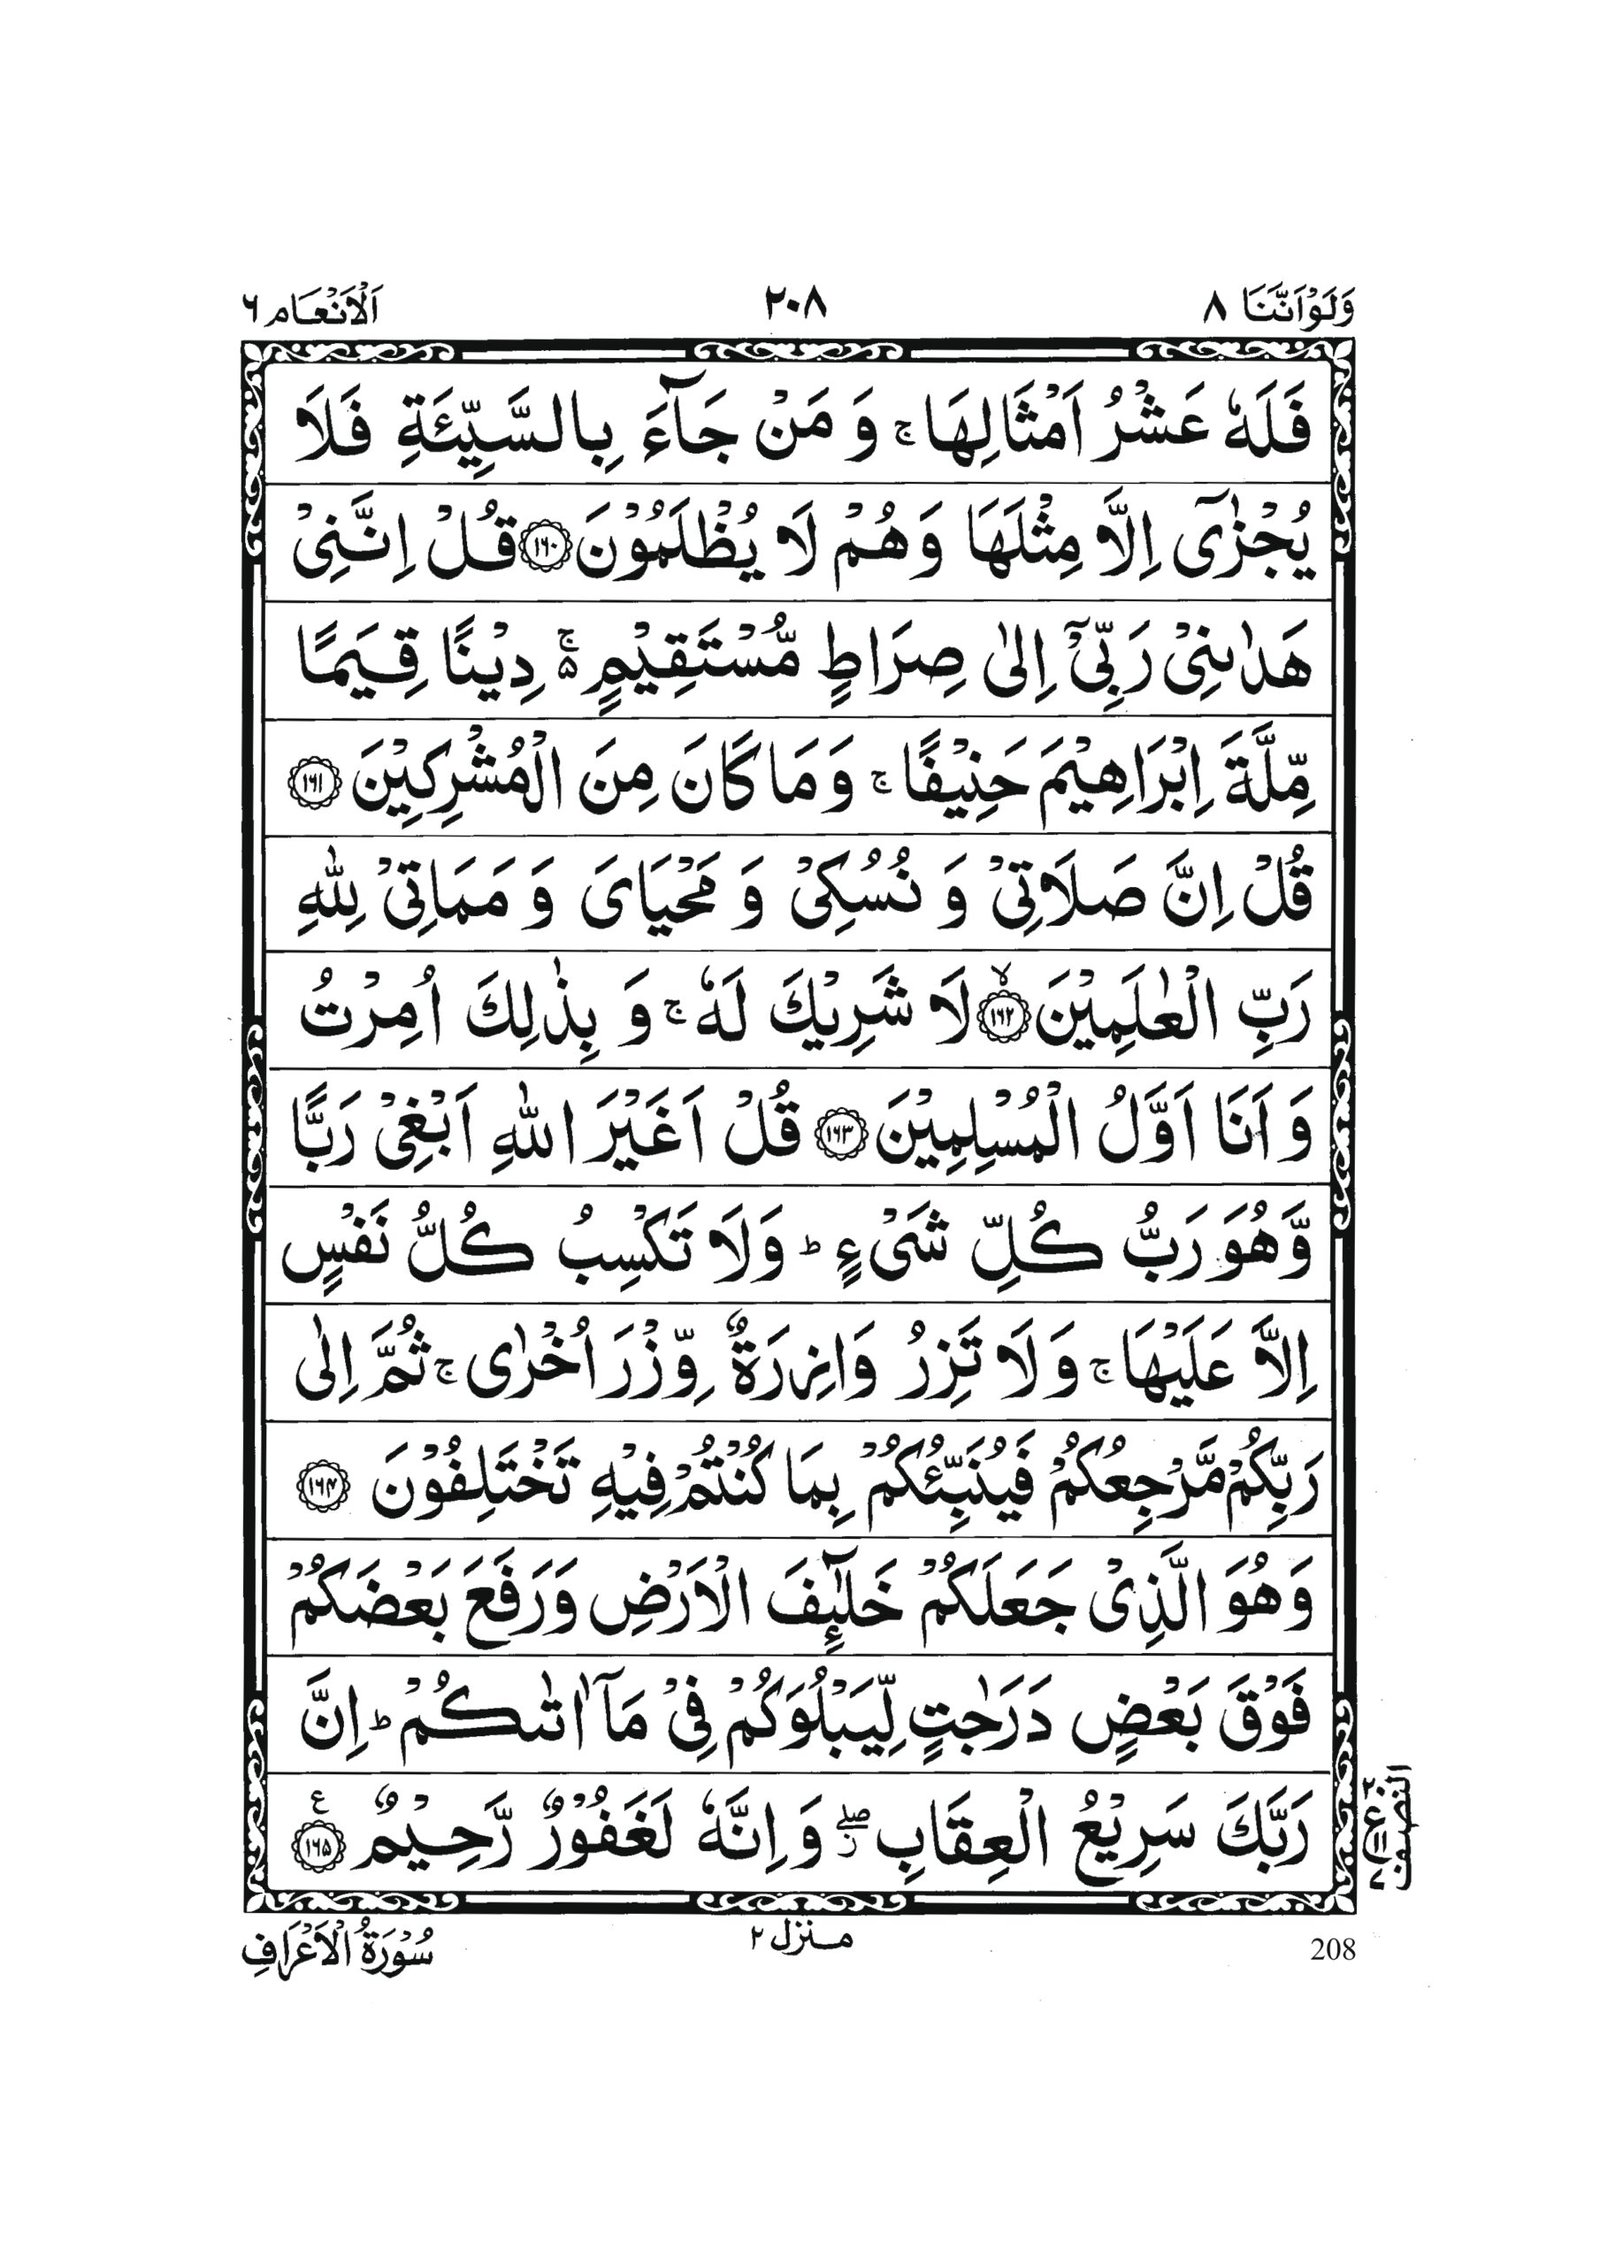 وَلَوْاَنَّنَا ٨
٢٠٨
اَلْاَنْعَام ٦
فَلَهٗ عَشْرُ اَمْثَالِهَا ۚ وَ مَنْ جَآءَ بِالسَّيِّئَةِ فَلَا
يُجْزٰۤى اِلَّا مِثْلَهَا وَ هُمْ لَا يُظْلَمُوْنَ ﴿۱۶۰﴾ قُلْ اِنَّنِیْ
هَدٰىنِیْ رَبِّیْۤ اِلٰى صِرَاطٍ مُّسْتَقِيْمٍ ۚ۬ دِيْنًا قِيَمًا
مِّلَّةَ اِبْرَاهِيْمَ حَنِيْفًا ۚ وَ مَا كَانَ مِنَ الْمُشْرِكِيْنَ ﴿۱۶۱﴾
قُلْ اِنَّ صَلَاتِیْ وَ نُسُكِیْ وَ مَحْيَایَ وَ مَمَاتِیْ لِلّٰهِ
رَبِّ الْعٰلَمِيْنَ ۙ﴿۱۶۲﴾ لَا شَرِيْكَ لَهٗ ۚ وَ بِذٰلِكَ اُمِرْتُ
وَ اَنَا اَوَّلُ الْمُسْلِمِيْنَ ﴿۱۶۳﴾ قُلْ اَغَيْرَ اللّٰهِ اَبْغِیْ رَبًّا
وَّ هُوَ رَبُّ كُلِّ شَیْءٍ ؕ وَلَا تَكْسِبُ كُلُّ نَفْسٍ
اِلَّا عَلَيْهَا ۚ وَلَا تَزِرُ وَازِرَةٌ وِّزْرَ اُخْرٰى ۚ ثُمَّ اِلٰى
رَبِّكُمْ مَّرْجِعُكُمْ فَيُنَبِّئُكُمْ بِمَا كُنْتُمْ فِيْهِ تَخْتَلِفُوْنَ ﴿۱۶۴﴾
وَ هُوَ الَّذِیْ جَعَلَكُمْ خَلٰٓئِفَ الْاَرْضِ وَ رَفَعَ بَعْضَكُمْ
فَوْقَ بَعْضٍ دَرَجٰتٍ لِّيَبْلُوَكُمْ فِیْ مَاۤ اٰتٰىكُمْ ؕ اِنَّ
رَبَّكَ سَرِيْعُ الْعِقَابِ ۖ ز وَ اِنَّهٗ لَغَفُوْرٌ رَّحِيْمٌ ﴿۱۶۵﴾ ع
النصف
٢ ع ١١ ٧
208
منزل ٢
سُوْرَةُ الْاَعْرَافِ